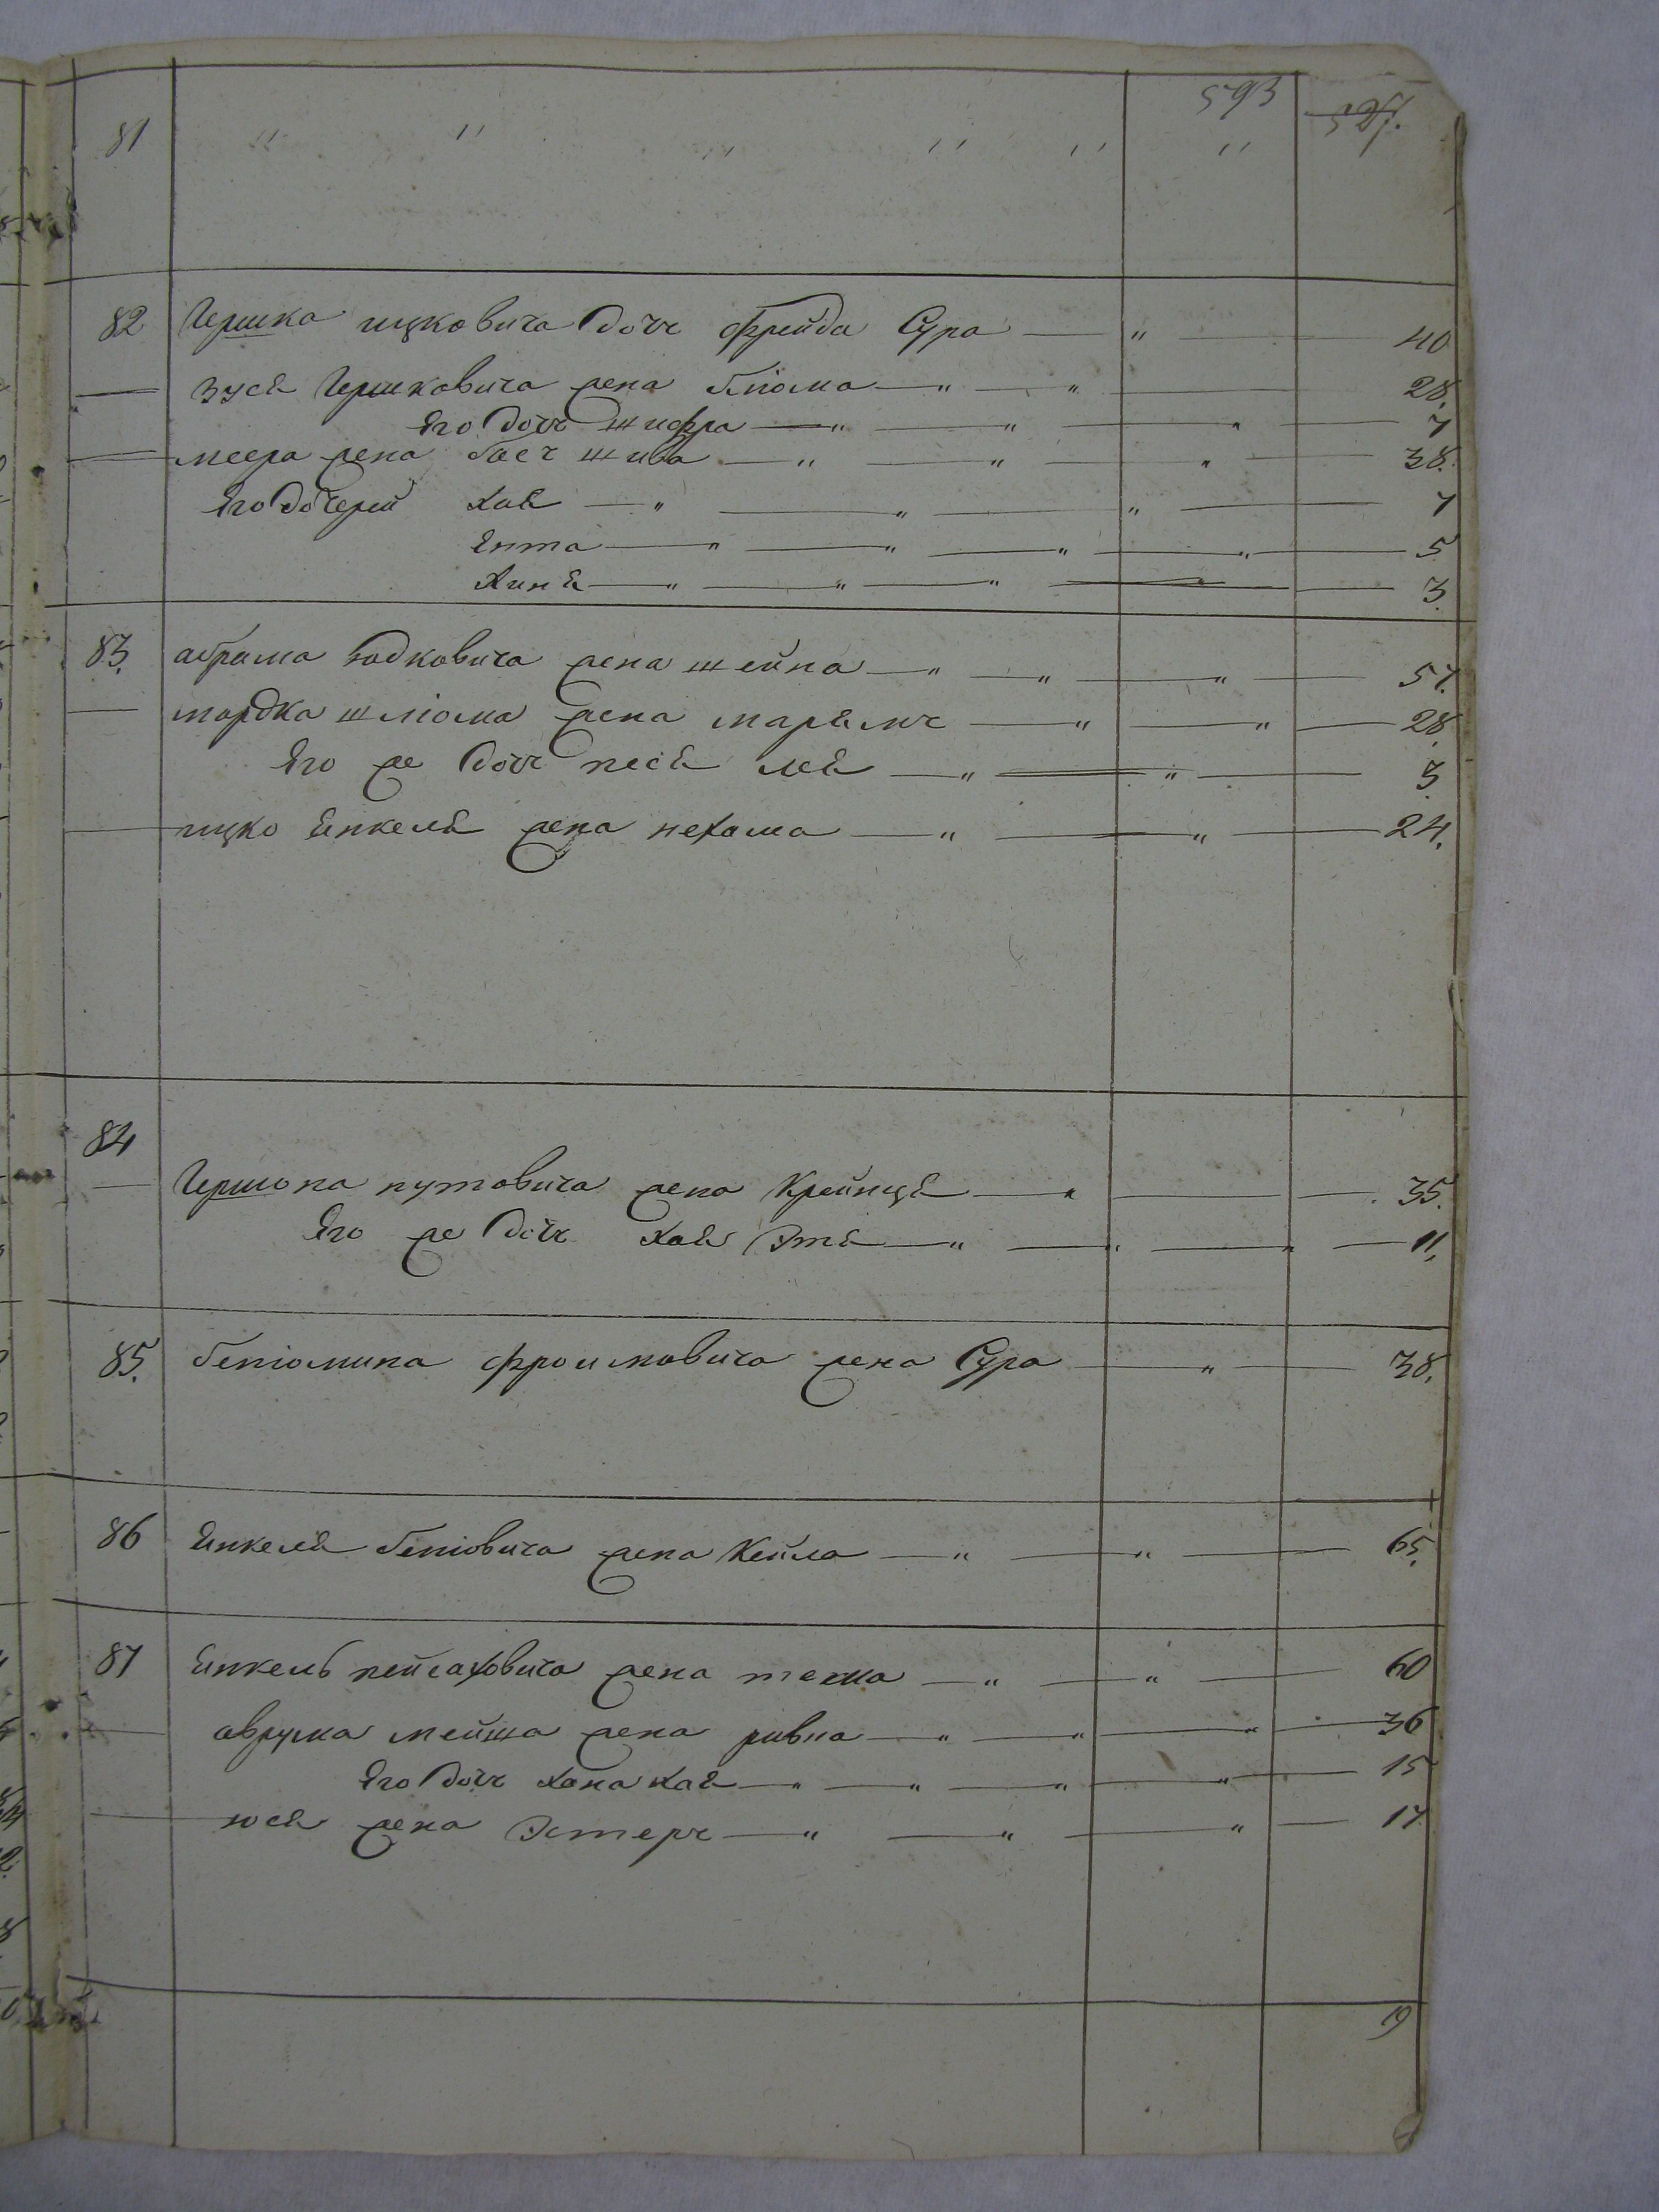 593
81 " " " " " "
82 Гершка ицковича дочь фрейда Сура — " — 40
— зуся Гершковича жена блюма — " — " — 28.
Его дочь шифра — " — " — " — 7
— меера жена басъ шива — " — " — " — 38.
Его дочерей хая — " — " — " — 7
Ента — " — " — " — " — 5
хиня — " — " — " — " — 3.
83. абрама юдковича жена шейна — " — " — " — 57.
— мордка шліома жена марямъ — " — " — 28
Его же дочь песя лея — " — " — 3.
— ицко Янкеля жена нехама — " — " — 24.
84
— Гершона нутовича жена Крейнця — " — 35.
Его же дочь хая Этя — " — " — " — 11.
85. беніомина фроимовича жена Сура — " — 38.
86 Янкеля беніовича жена Кейла — " — " — 65.
87 Янкель пейсаховича жена тема — " — " — 60
— аврума мейша жена ривка — " — " — " — 36
Его дочь хана хая — " — " — " — " — 15
— юся жена Эстеръ — " — " — " — 17.
19